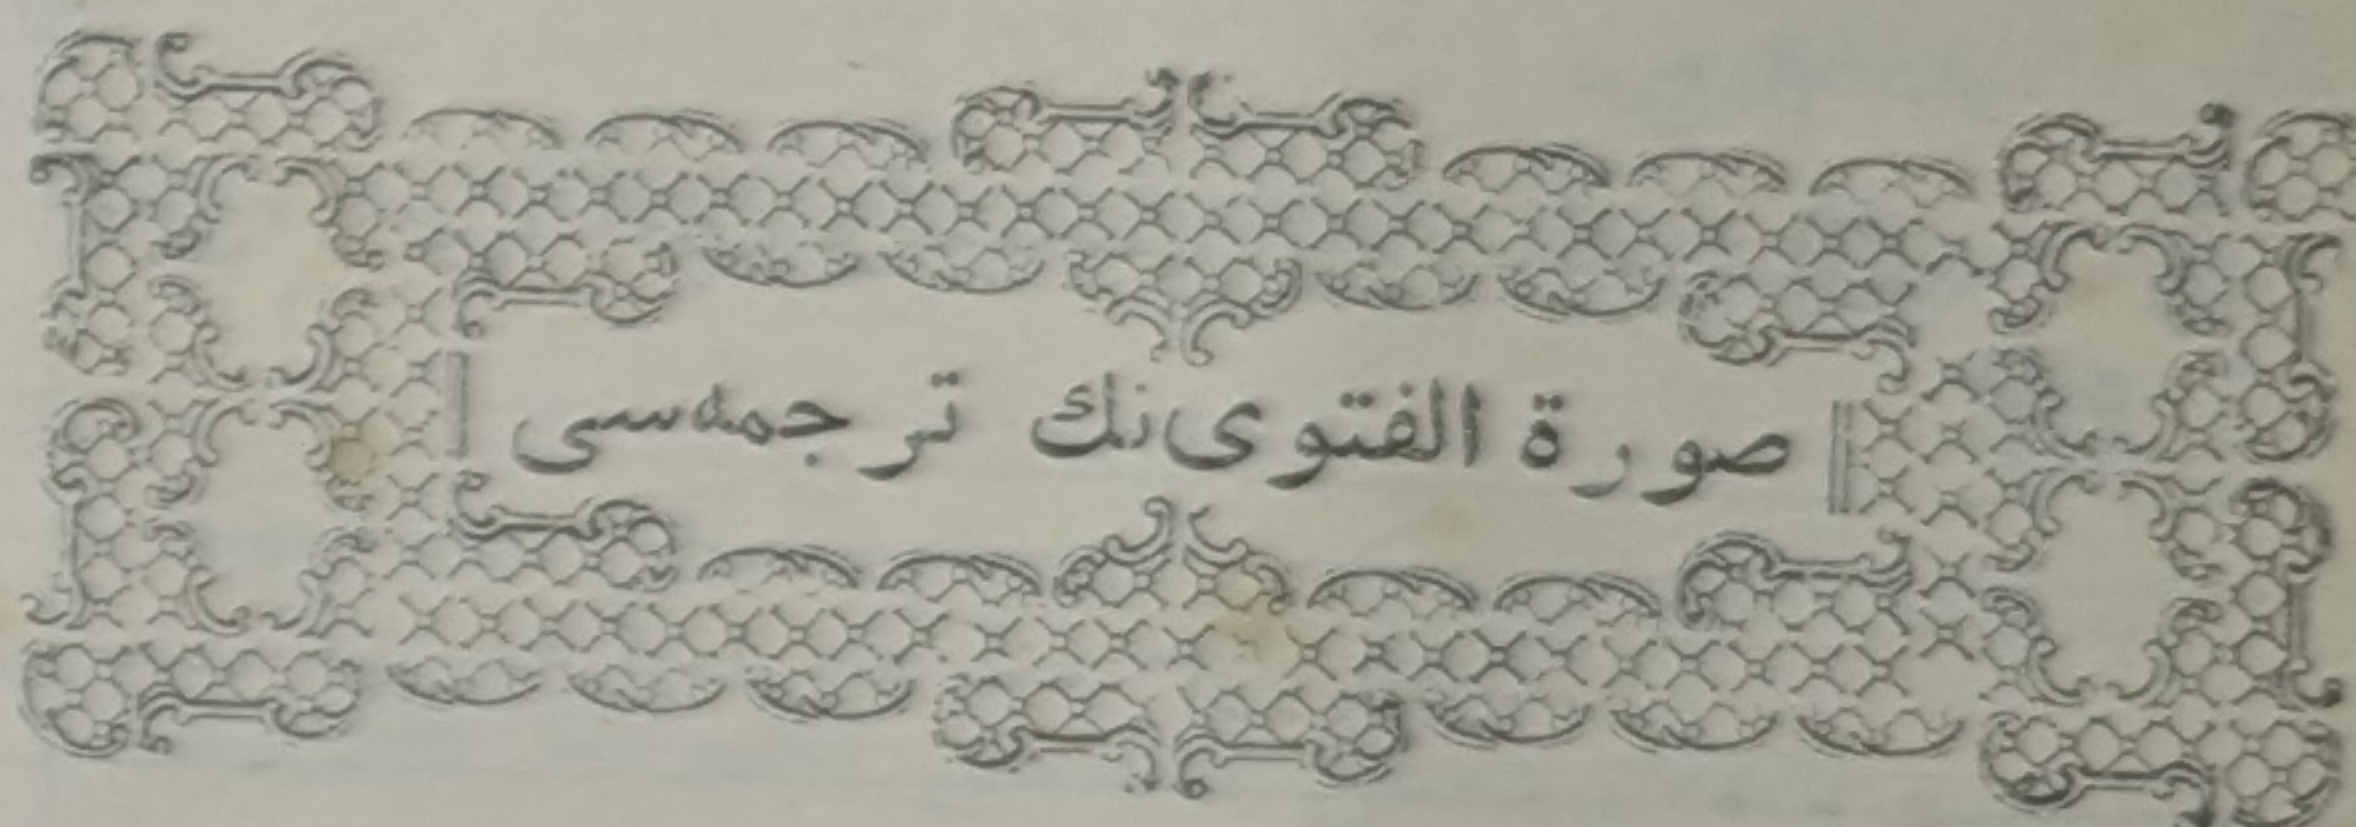 صورة الفتوى‌نك ترجمه‌سى